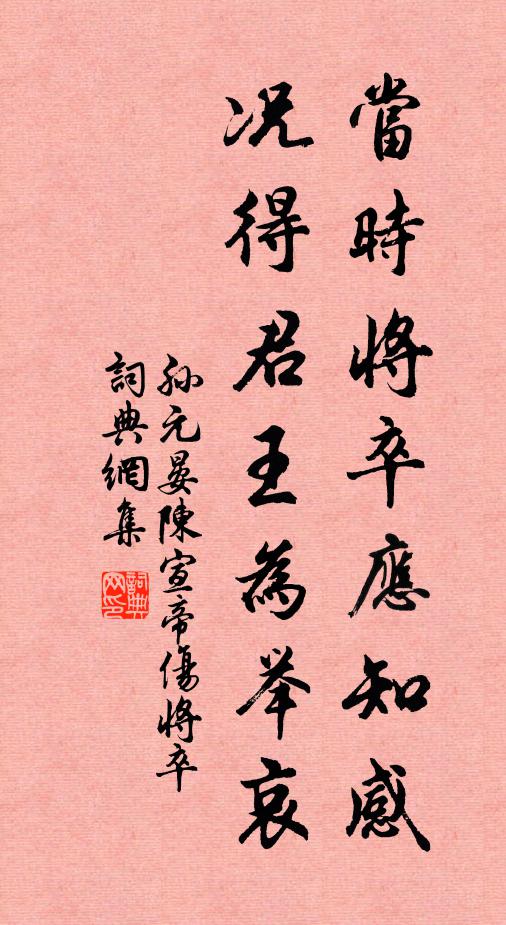 當時將卒應知感
况得君王為举哀
孙元晏陳宣帝傷將卒
詞典網集
詞典
网印